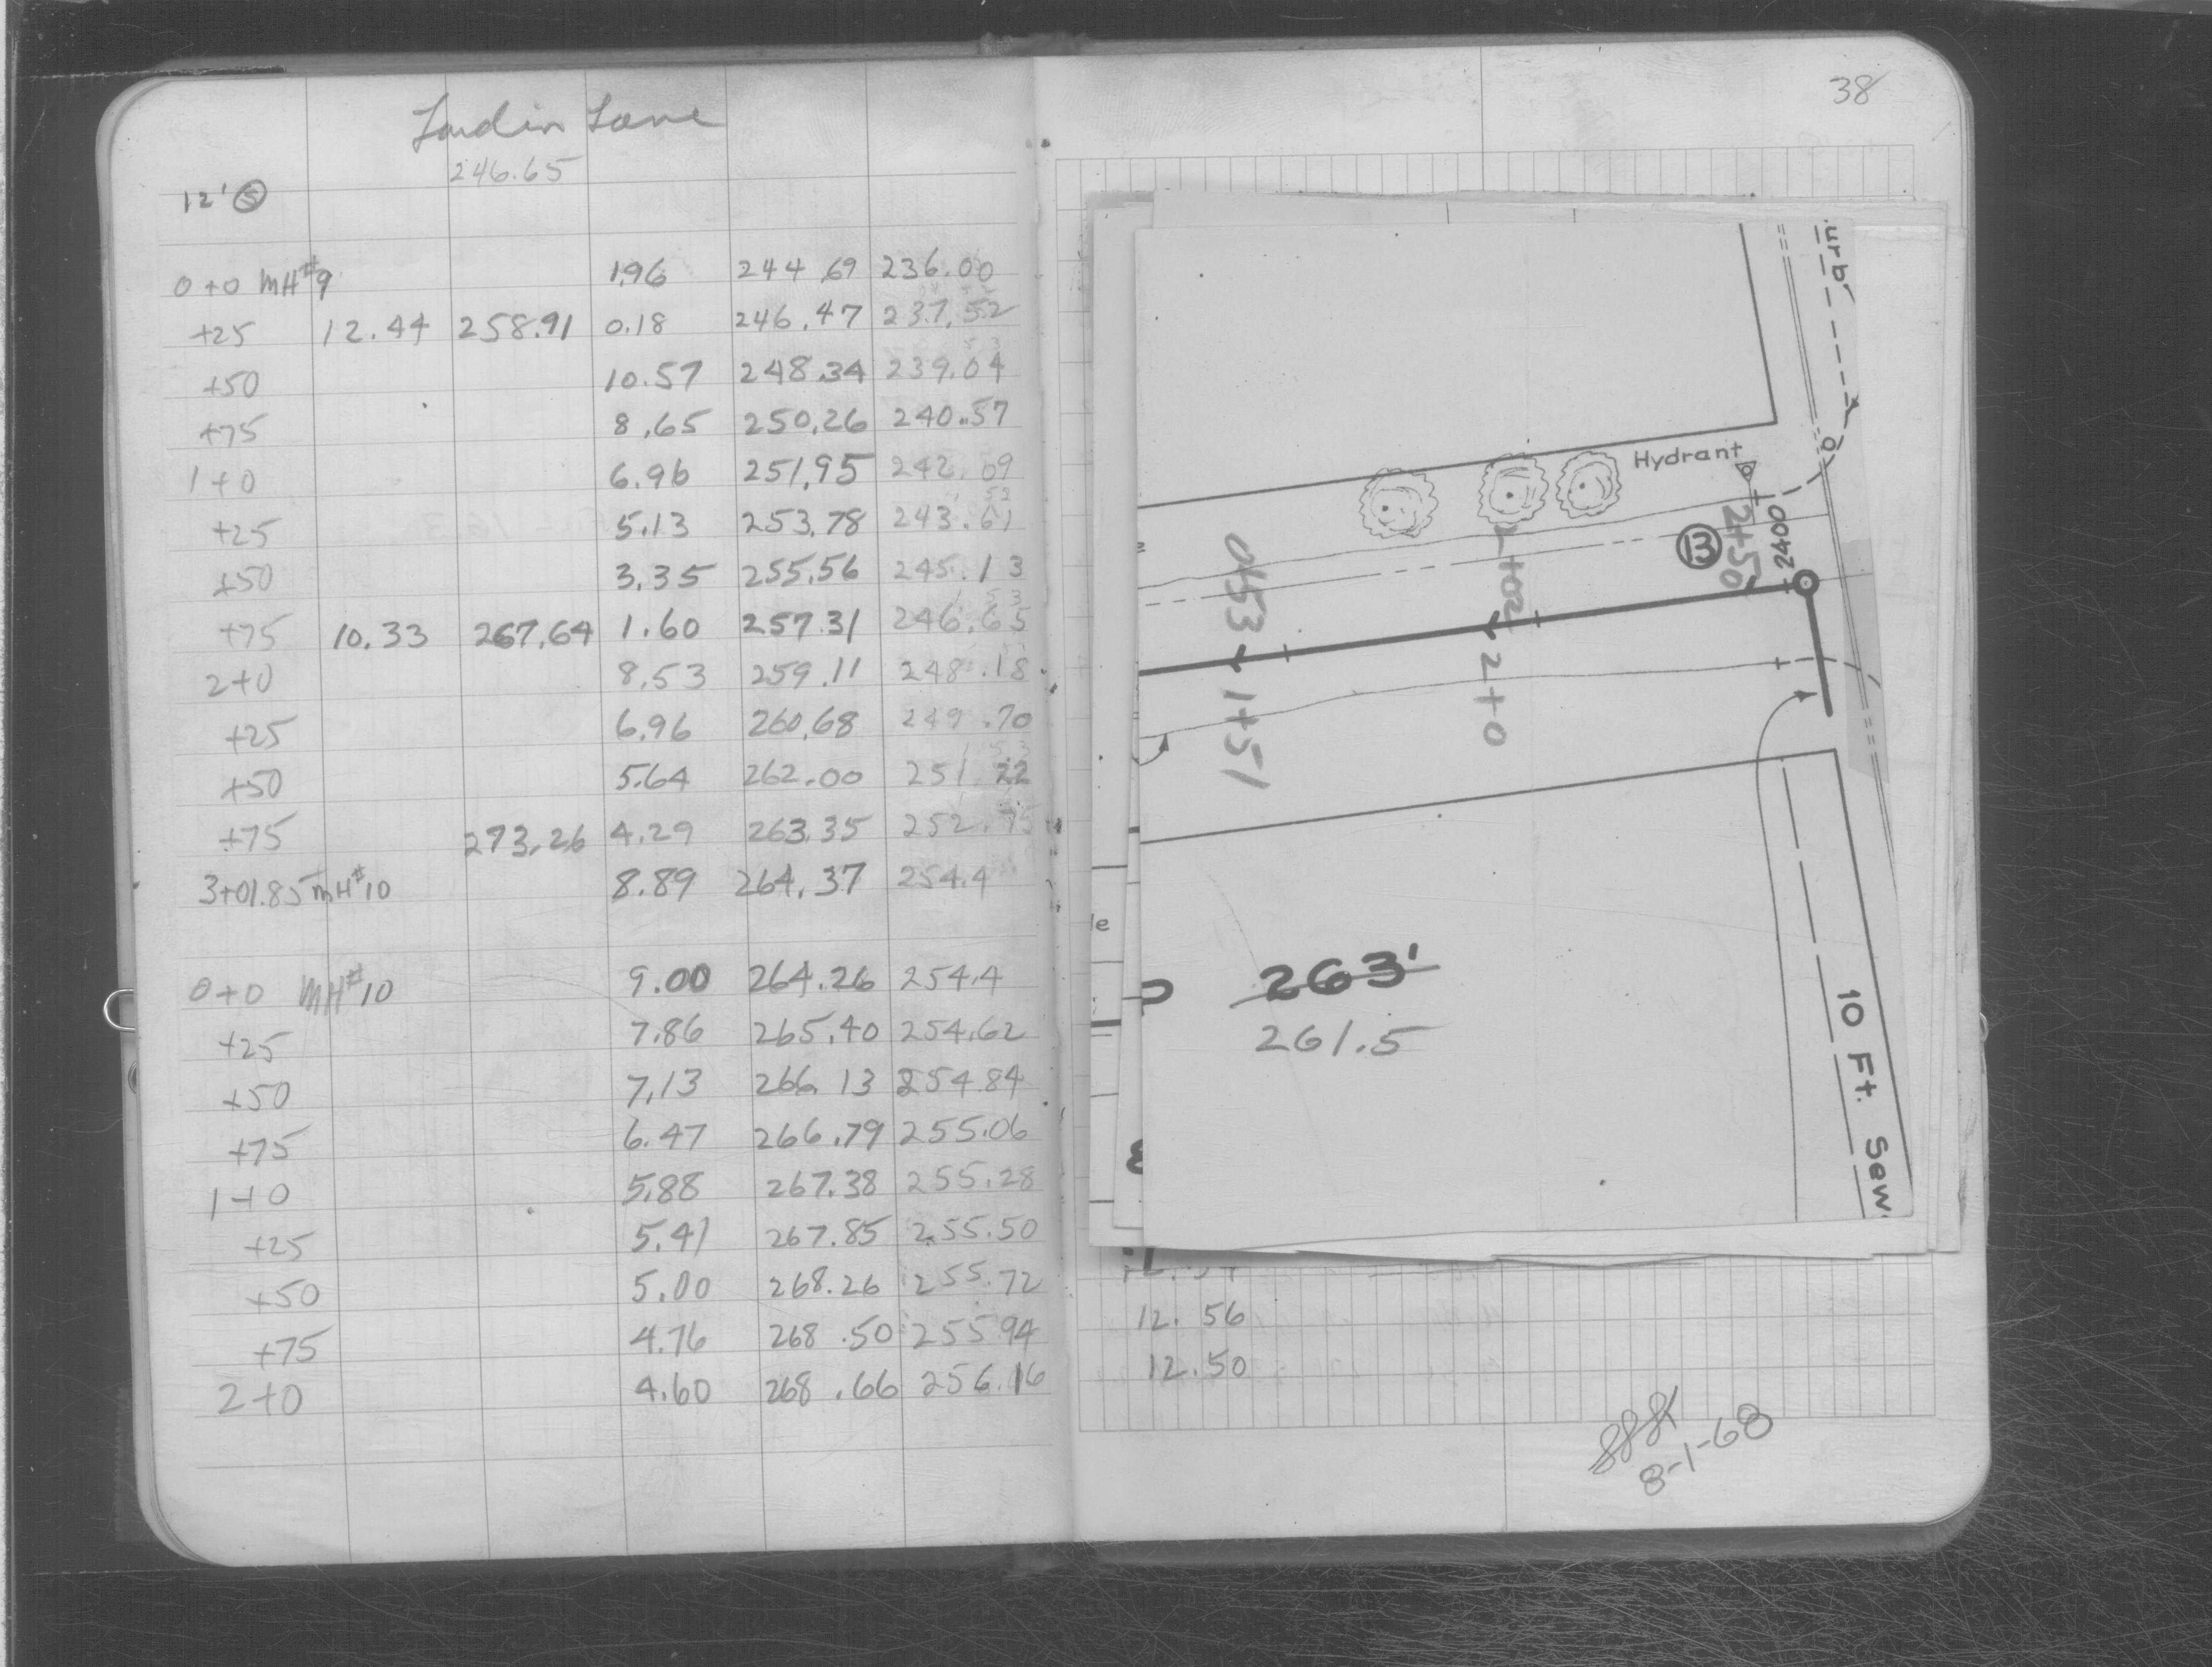 Lane
246.65
12' Ⓢ
0+0 MH#9 1.96 244.69 236.00
+25 12.44 258.91 0.18 246.47 237.52
+50 10.57 248.34 239.04
+75 8.65 250.26 240.57
1+0 6.96 251.95 242.09
+25 5.13 253.78 243.61
+50 3.35 255.56 245.13
+75 10.33 267.64 1.60 257.31 246.65
2+0 8.53 259.11 248.18
+25 6.96 260.68 249.70
+50 5.64 262.00 251.22
+75 273.26 4.29 263.35 252.75
3+01.85 MH#10 8.89 264.37 254.4
0+0 MH#10 9.00 264.26 254.4
+25 7.86 265.40 254.62
+50 7.13 266.13 254.84
+75 6.47 266.79 255.06
1+0 5.88 267.38 255.28
+25 5.41 267.85 255.50
+50 5.00 268.26 255.72
+75 4.76 268.50 255.94
2+0 4.60 268.66 256.16
38
Hydrant
13
2+50
2400
0+53
1+02
1+51
2+0
263'
261.5
10 Ft. Sew.
le
12.56
12.50
8-1-68